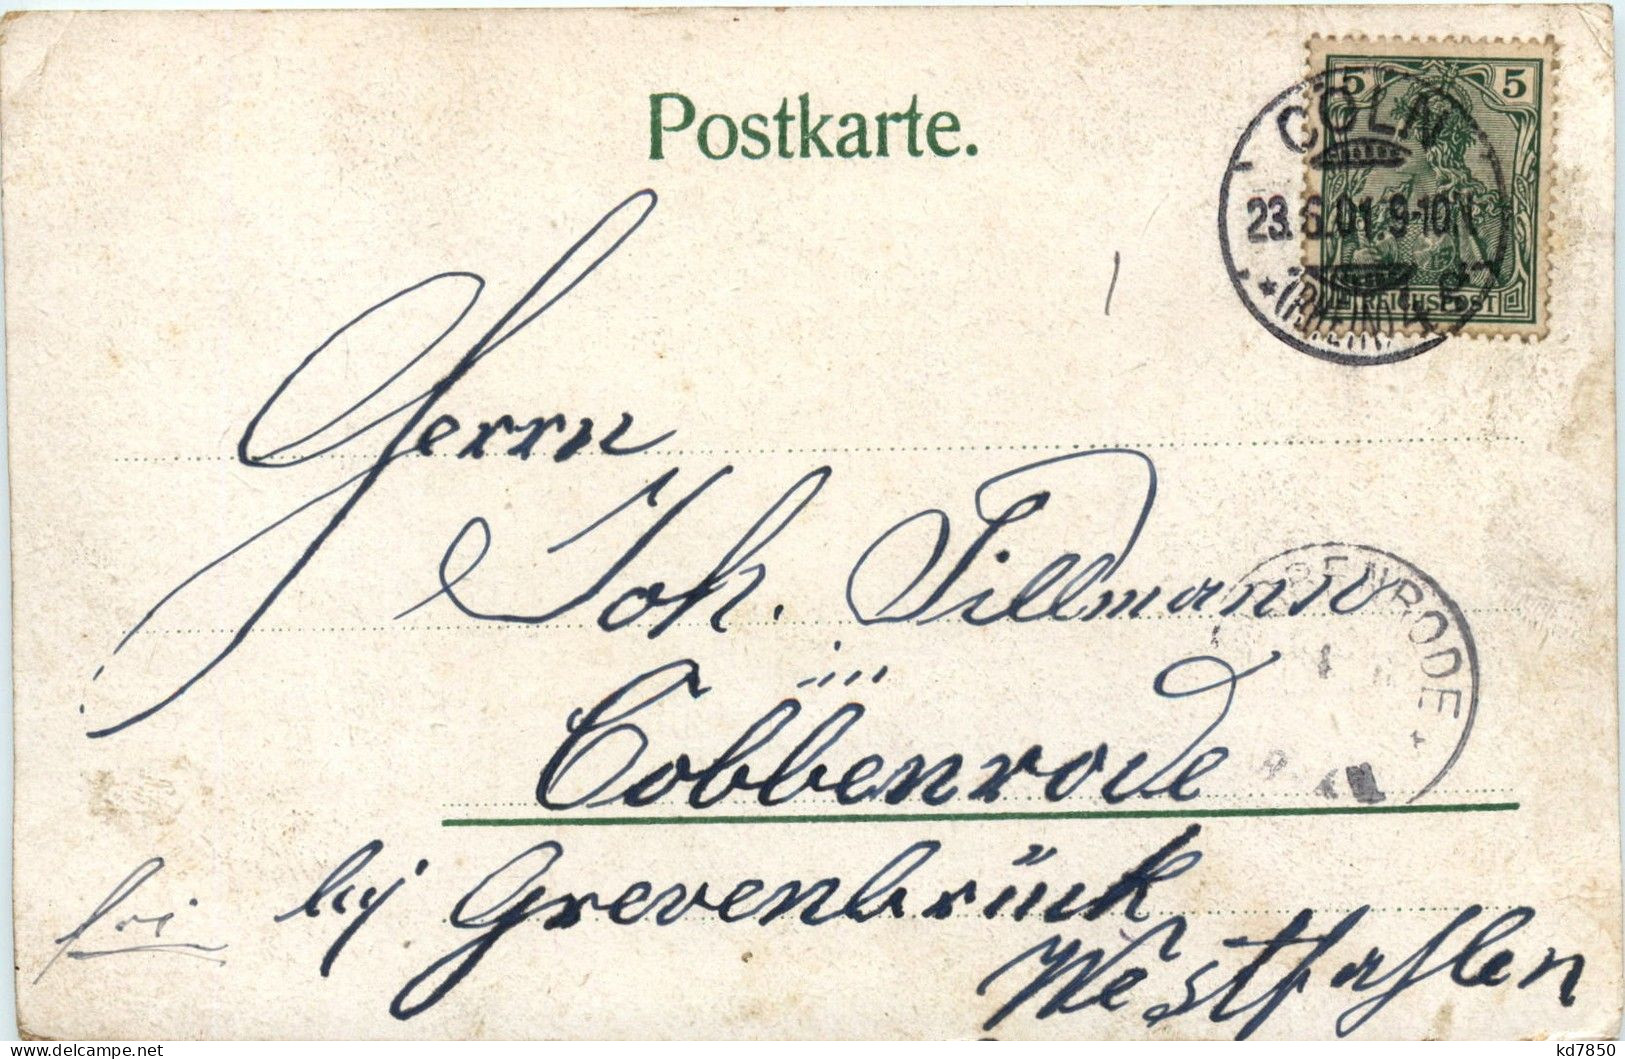 Postkarte.
5 5
CÖLN
23.6.01.9-10N
(RHEIN)
REICHSPOST
Herrn
Joh. Tillmann
Cobbenrode
COBBENRODE
bei Grevenbrück
Westfahlen
frei
www.delcampe.net
kd7850